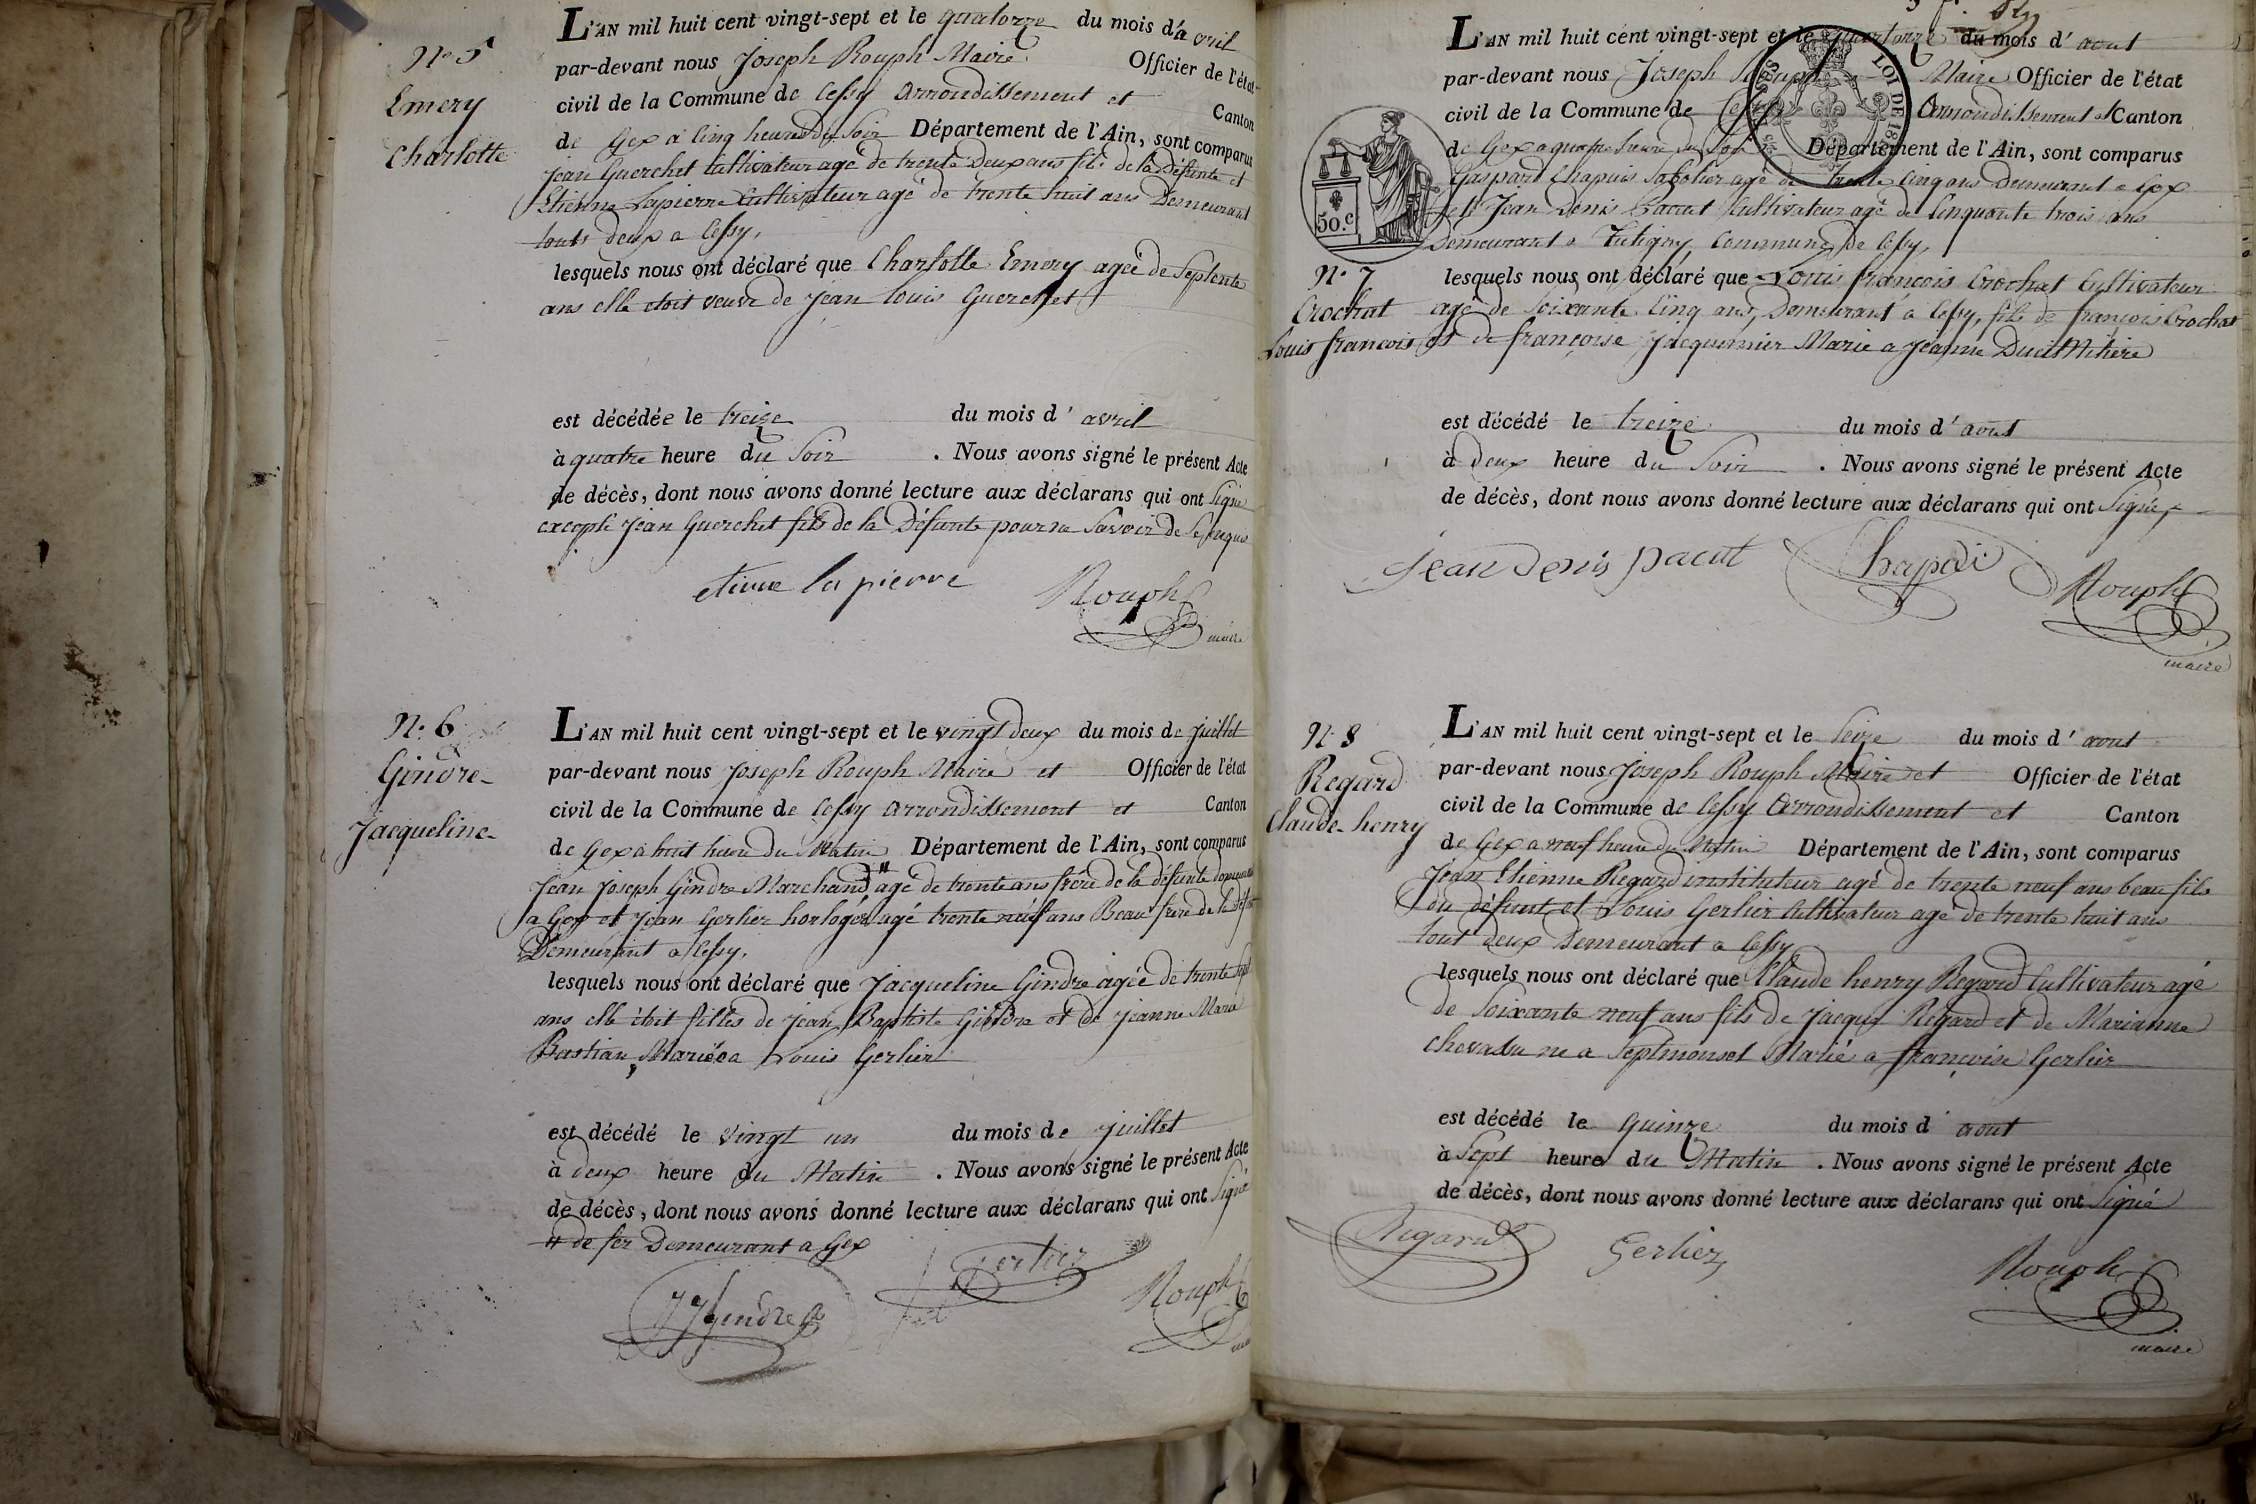 N.º 5
Emery
Charlotte
L'AN mil huit cent vingt-sept et le quatorze du mois d'avril
par-devant nous Joseph Rouph Maire Officier de l'état-
civil de la Commune de Cessy arrondissement et Canton
de Gex à Cinq heures du Soir Département de l'Ain, sont comparus
Jean Guerchet Cultivateur agé de trente Deux ans fils de la Défunte et
Etienne Lapierre Cultivateur agé de trente huit ans Demeurant
touts deux a Cessy.
lesquels nous ont déclaré que Charlotte Emery agée de Septente
ans elle étoit veuve de Jean Louis Guerchet
est décédée le treize du mois d' avril
à quatre heure du Soir . Nous avons signé le présent Acte
de décès, dont nous avons donné lecture aux déclarans qui ont Signé
excepté Jean Guerchet fils de la Défunte pour ne Savoir de Se requis
etiene la pierre Rouph
maire
N.º 6
Gindre
Jacqueline
L'AN mil huit cent vingt-sept et le vingt deux du mois de Juillet
par-devant nous Joseph Rouph Maire et Officier de l'état
civil de la Commune de Cessy arrondissement et Canton
de Gex à huit heure du Matin Département de l'Ain, sont comparus
Jean Joseph Gindre Marchand " agé de trente ans frere de la défunte
a Gex et Jean Gerlier horloger agé trente neuf ans Beau frere de la
Demeurant a Cessy.
lesquels nous ont déclaré que Jacqueline Gindre agée de trente sept
ans elle étoit filles de Jean Baptiste Gindre et de Jeanne Marie
Bastian, Mariée a Louis Gerlier
est décédé le vingt un du mois de Juillet
à deux heure du Matin . Nous avons signé le présent Acte
de décès, dont nous avons donné lecture aux déclarans qui ont Signé
" de fer Demeurant a Gex
Gerlier
JJ Gindre Rouph
LOI DE 18
50.c
L'AN mil huit cent vingt-sept et le quatorze du mois d' aout
par-devant nous Joseph Rouph Maire Officier de l'état
civil de la Commune de Cessy Arrondissement et Canton
de Gex a quatre heure du Soir Département de l'Ain, sont comparus
Gaspard Chapuis Sabotier agé de trente Cinq ans Demeurant a Gex
et Jean Denis Pacut Cultivateur agé de Cinquante trois ans
Demeurant a Tutigny Commune de Cessy,
N.º 7
Crochat
Louis francois
lesquels nous ont déclaré que Louis francois Crochat Cultivateur
agé de Soixante Cinq ans, Demeurant a Cessy, fils de francois Crochat
et de françoise Jacquemier Marie a Jeanne
est décédé le treize du mois d' aout
à deux heure du Soir . Nous avons signé le présent Acte
de décès, dont nous avons donné lecture aux déclarans qui ont Signé,
jean denis pacut Rouph
maire
N.º 8
Regard
Claude-henry
L'AN mil huit cent vingt-sept et le Seize du mois d' aout
par-devant nous Joseph Rouph Maire et Officier de l'état
civil de la Commune de Cessy Arrondissement et Canton
de Gex a neuf heure du Matin Département de l'Ain, sont comparus
Jean Etienne Regard instituteur agé de trente neuf ans beau fils
du défunt et Louis Gerlier Cultivateur agé de trente huit ans
tout deux Demeurant a Cessy
lesquels nous ont déclaré que Claude henry Regard Cultivateur agé
de Soixante neuf ans fils de Jacque Regard et de Marianne
ne a Septmoncel Marié a françoise Gerlier
est décédé le Quinze du mois d aout
à Sept heure du Matin . Nous avons signé le présent Acte
de décès, dont nous avons donné lecture aux déclarans qui ont Signé
Regard Gerlier Rouph
maire